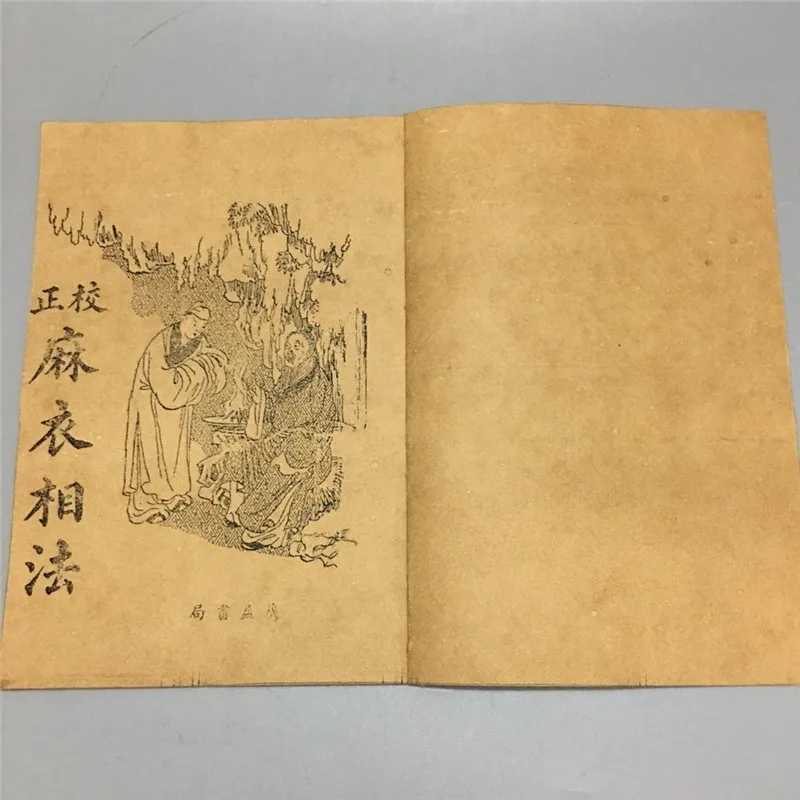 校正
麻衣相法
益書局